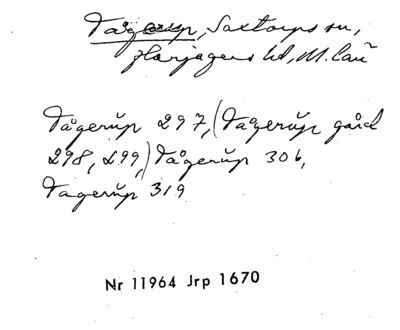 Tågerup, Saxtorps sn,
Harjagers hd, M. län
Tågerŭp 297, (Tågerŭp gård
298, 299,) Tågerŭp 306,
Tagerŭp 319
Nr 11964 Jrp 1670